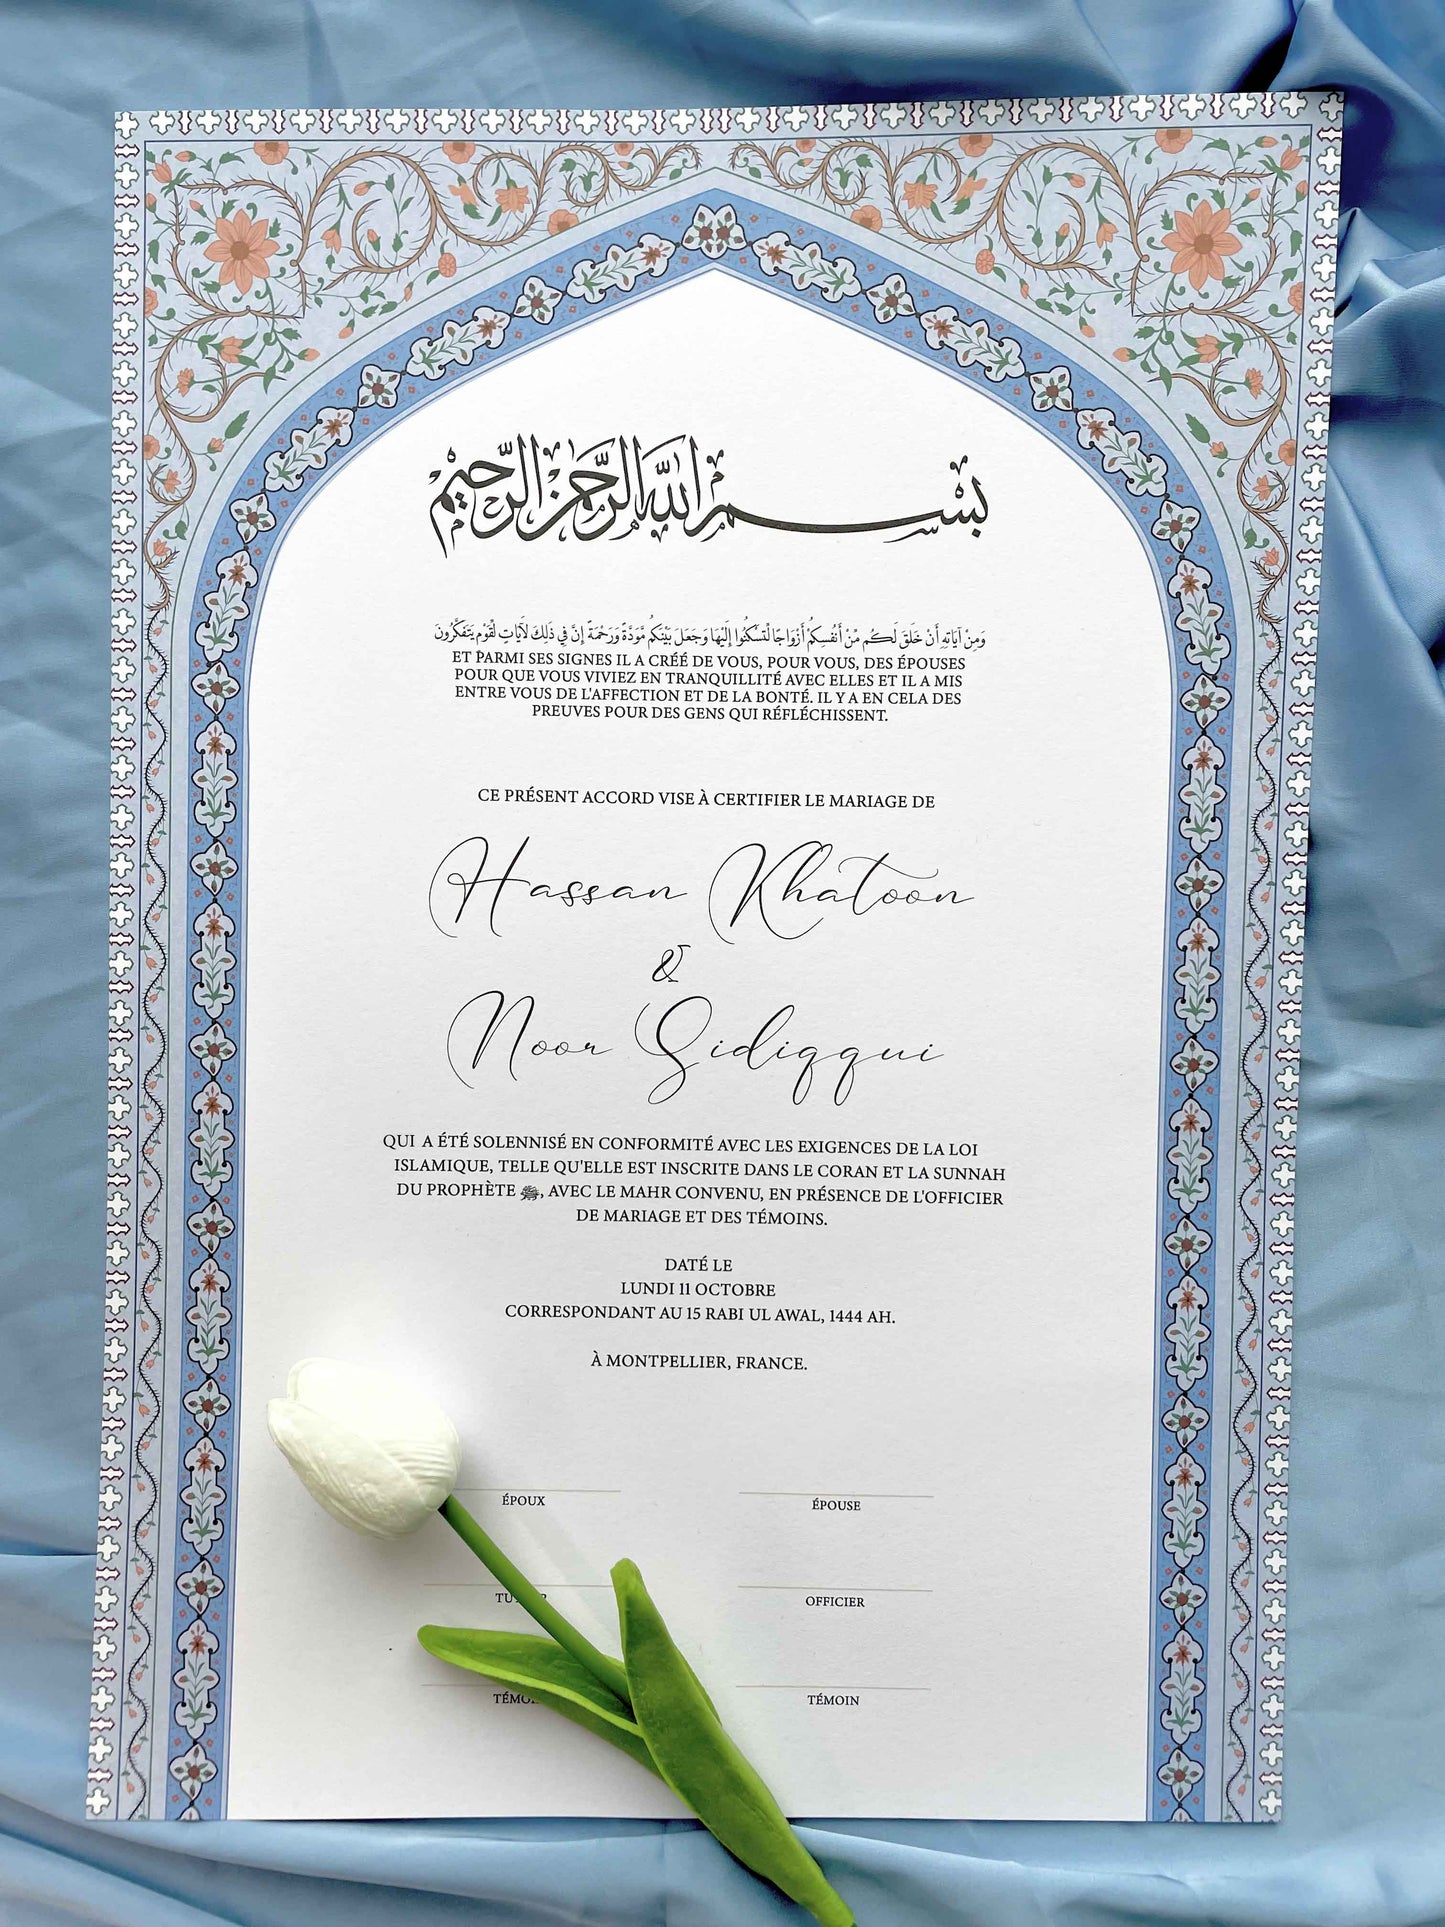 بسم الله الرحمن الرحيم
وَمِنْ آيَاتِهِ أَنْ خَلَقَ لَكُم مِّنْ أَنفُسِكُمْ أَزْوَاجًا لِّتَسْكُنُوا إِلَيْهَا وَجَعَلَ بَيْنَكُم مَّوَدَّةً وَرَحْمَةً إِنَّ فِي ذَلِكَ لَآيَاتٍ لِّقَوْمٍ يَتَفَكَّرُونَ
ET PARMI SES SIGNES IL A CRÉÉ DE VOUS, POUR VOUS, DES ÉPOUSES
POUR QUE VOUS VIVIEZ EN TRANQUILLITÉ AVEC ELLES ET IL A MIS
ENTRE VOUS DE L'AFFECTION ET DE LA BONTÉ. IL Y A EN CELA DES
PREUVES POUR DES GENS QUI RÉFLÉCHISSENT.
CE PRÉSENT ACCORD VISE À CERTIFIER LE MARIAGE DE
Hassan Khatoon
&
Noor Sidiqqui
QUI A ÉTÉ SOLENNISÉ EN CONFORMITÉ AVEC LES EXIGENCES DE LA LOI
ISLAMIQUE, TELLE QU'ELLE EST INSCRITE DANS LE CORAN ET LA SUNNAH
DU PROPHÈTE ﷺ, AVEC LE MAHR CONVENU, EN PRÉSENCE DE L'OFFICIER
DE MARIAGE ET DES TÉMOINS.
DATÉ LE
LUNDI 11 OCTOBRE
CORRESPONDANT AU 15 RABI UL AWAL, 1444 AH.
À MONTPELLIER, FRANCE.
ÉPOUX ÉPOUSE
OFFICIER
TÉMOIN